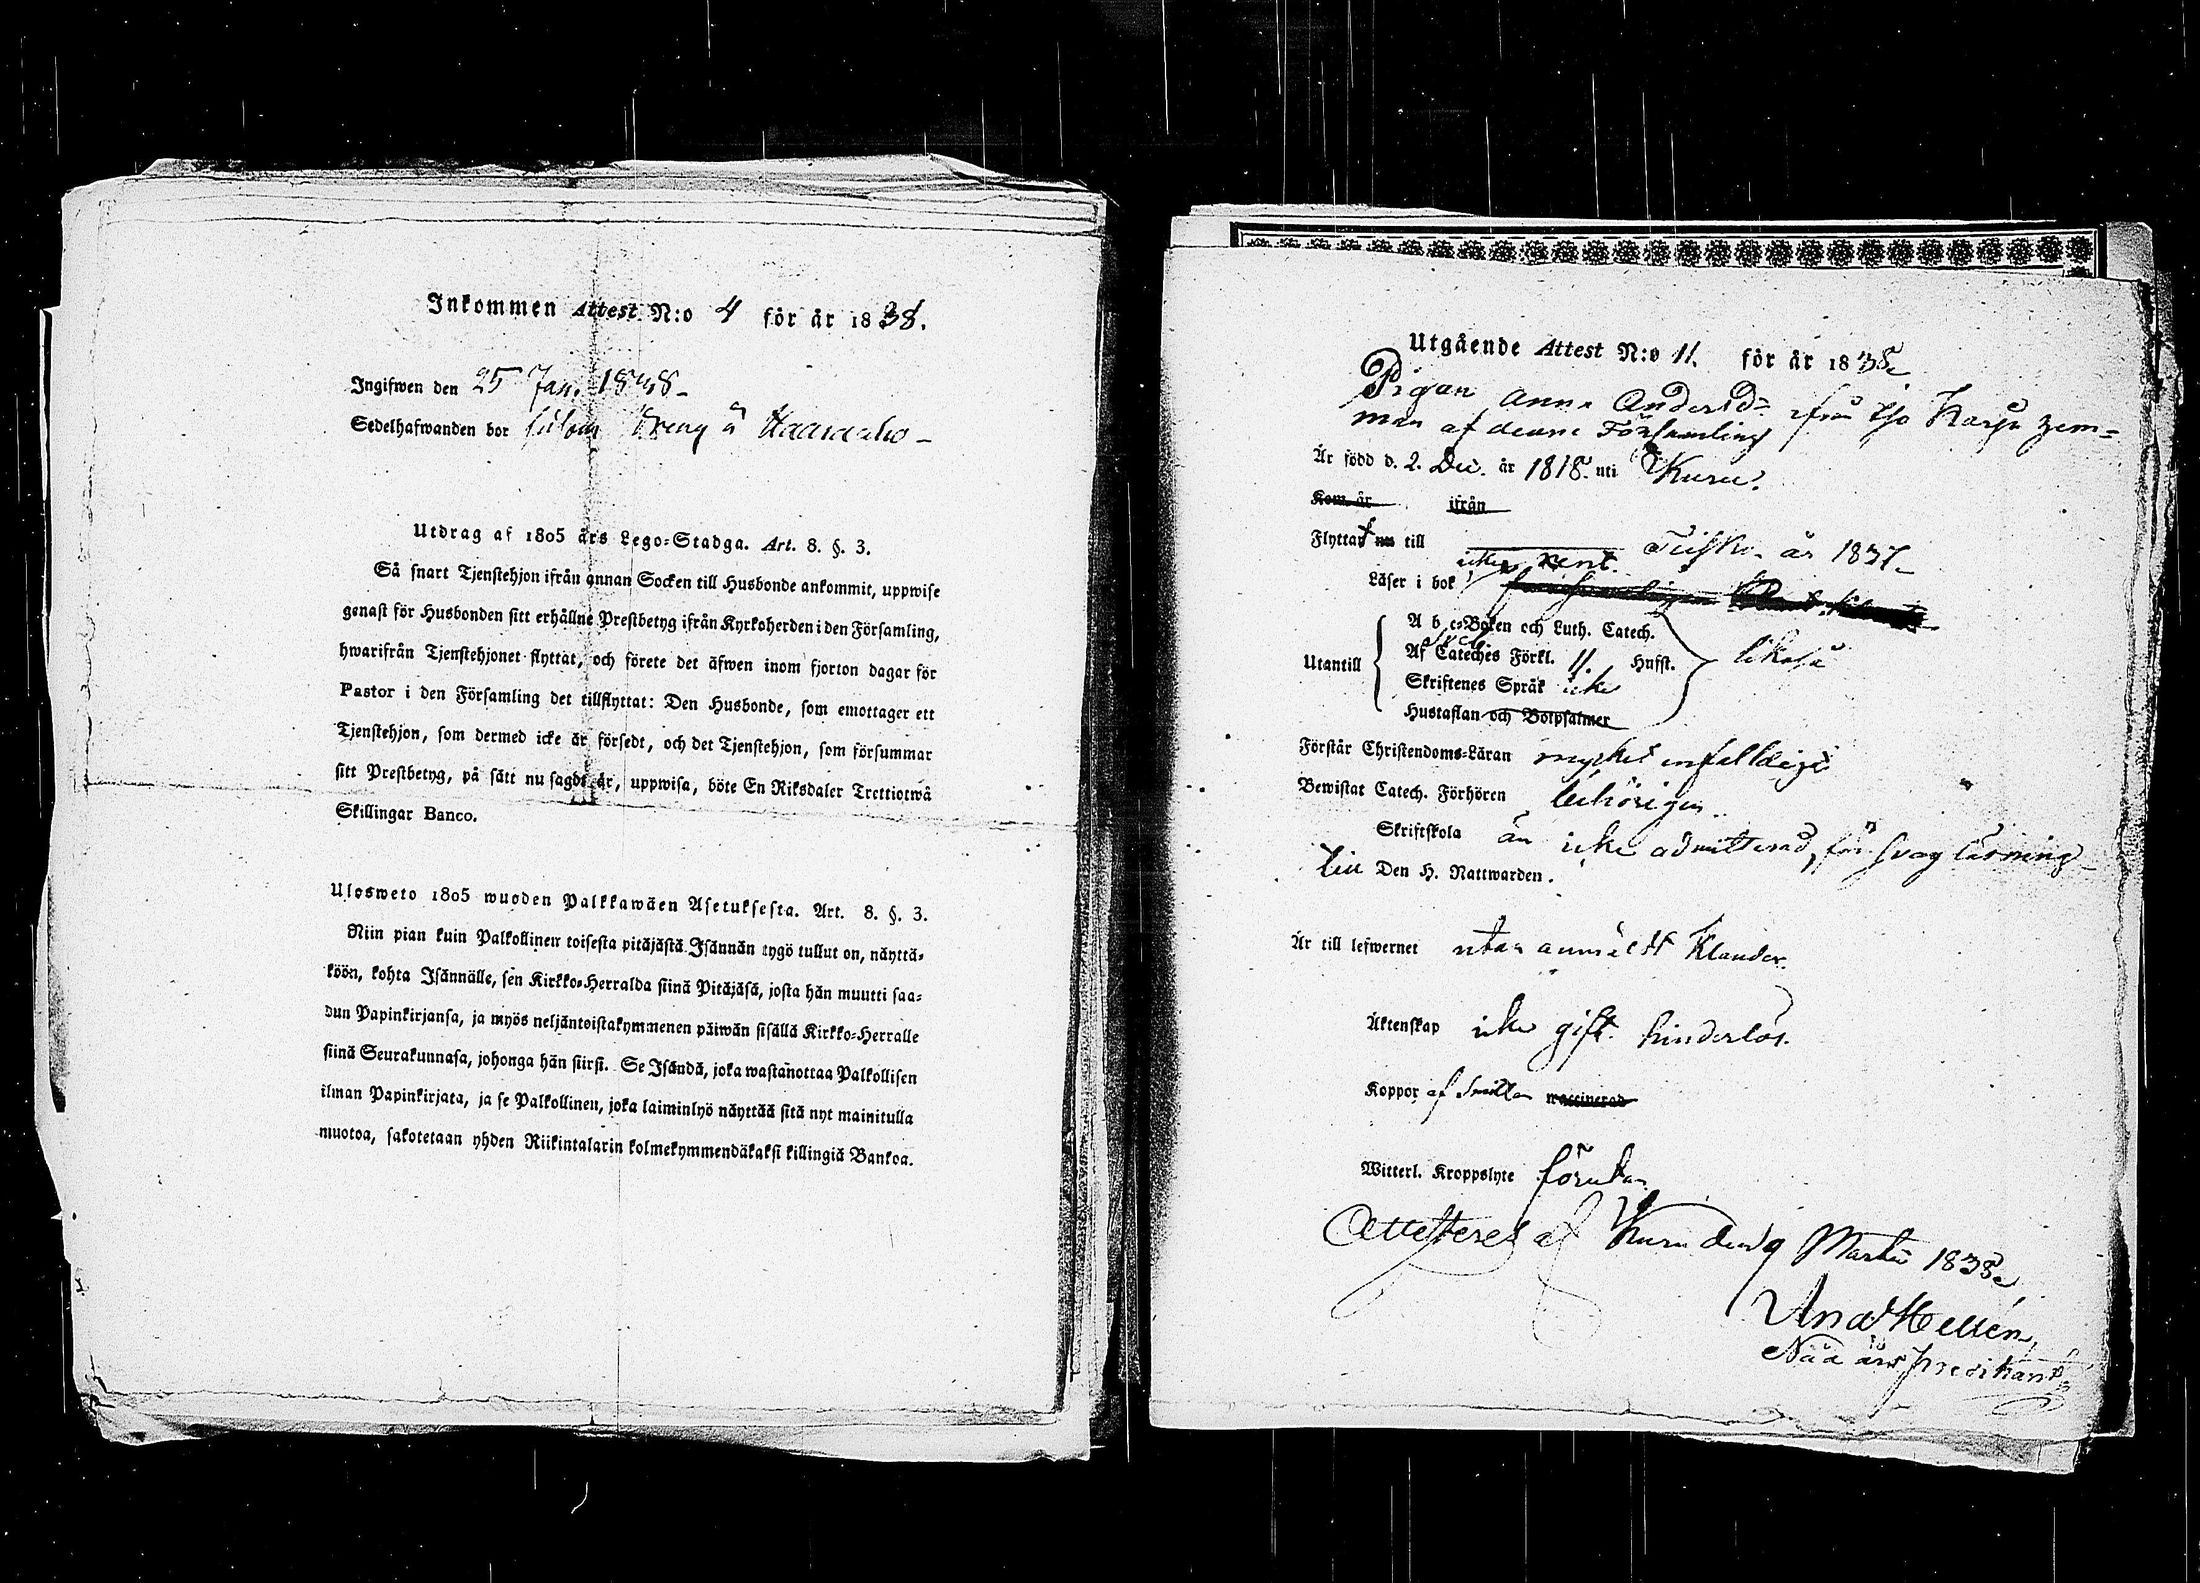 Inkommen Attest N:o 4 för år 1838.
Ingifwen den 25 Jan. 1838
Sedelhafwanden bor såsom Dreng å Haaraaho
Utdrag af 1805 års Lego-Stadga. Art. 8. §. 3.
Så snart Tjenstehjon ifrån annan Socken till Husbonde ankommit, uppwise
genast för Husbonden sitt erhållne Prestbetyg ifrån Kyrkoherden i den Församling,
hwarifrån Tjenstehjonet flyttat, och förete det äfwen inom fjorton dagar för
Pastor i den Församling det tillflyttat: Den Husbonde, som emottager ett
Tjenstehjon, som dermed icke är försedt, och det Tjenstehjon, som försummar
sitt Prestbetyg, på sätt nu sagdt är, uppwisa, böte En Riksdaler Trettiotwå
Skillingar Banco.
Ulosweto 1805 wuoden Palkkawäen Asetuksesta. Art. 8. §. 3.
Niin pian kuin Palkollinen toisesta pitäjästä Isännän tygö tullut on, näyttä-
köön, kohta Isännälle, sen Kirkko-Herralda siinä Pitäjäsä, josta hän muutti saa-
dun Papinkirjansa, ja myös neljäntoistakymmenen päiwän sisällä Kirkko-Herralle
siinä Seurakunnasa, johonga hän siirsi. Se Isändä, joka wastanottaa Palkollisen
ilman Papinkirjata, ja se Palkollinen, joka laiminlyö näyttää sitä nyt mainitulla
muotoa, sakotetaan yhden Riikintalarin kolmekymmendäkaksi killingiä Bankoa.
Utgående Attest N:o 11. för år 1838
Pigan Anna Andersd= ifrå Karju hem=
man af denne Församling
Är född d. 2. Dec. år 1818. uti Kuru.
Kom år ifrån
Flyttat nu till år 1837
icke rent.
Läser i bok
Utantill
A b c-Boken och Luth. Catech.
Af Cateches Förkl. 11. Hufst. likaså
Skriftenes Språk icke
Hustaflan och Botpsalmer
Förstår Christendoms-Läran mycket enfalldigt
Bewistat Catech. Förhören behörigen
Skriftskola än icke admitterad, för svag läsning
till Den H. Nattwarden.
Är till lefwernet utan anmäldt Klander.
Äktenskap icke gift. hinderlös.
Koppor waccinerad
Witterl. Kroppslyte förutan
Attesteres af Kuru den 9 Martii 1838
And Hellén,
Nåd års predikant